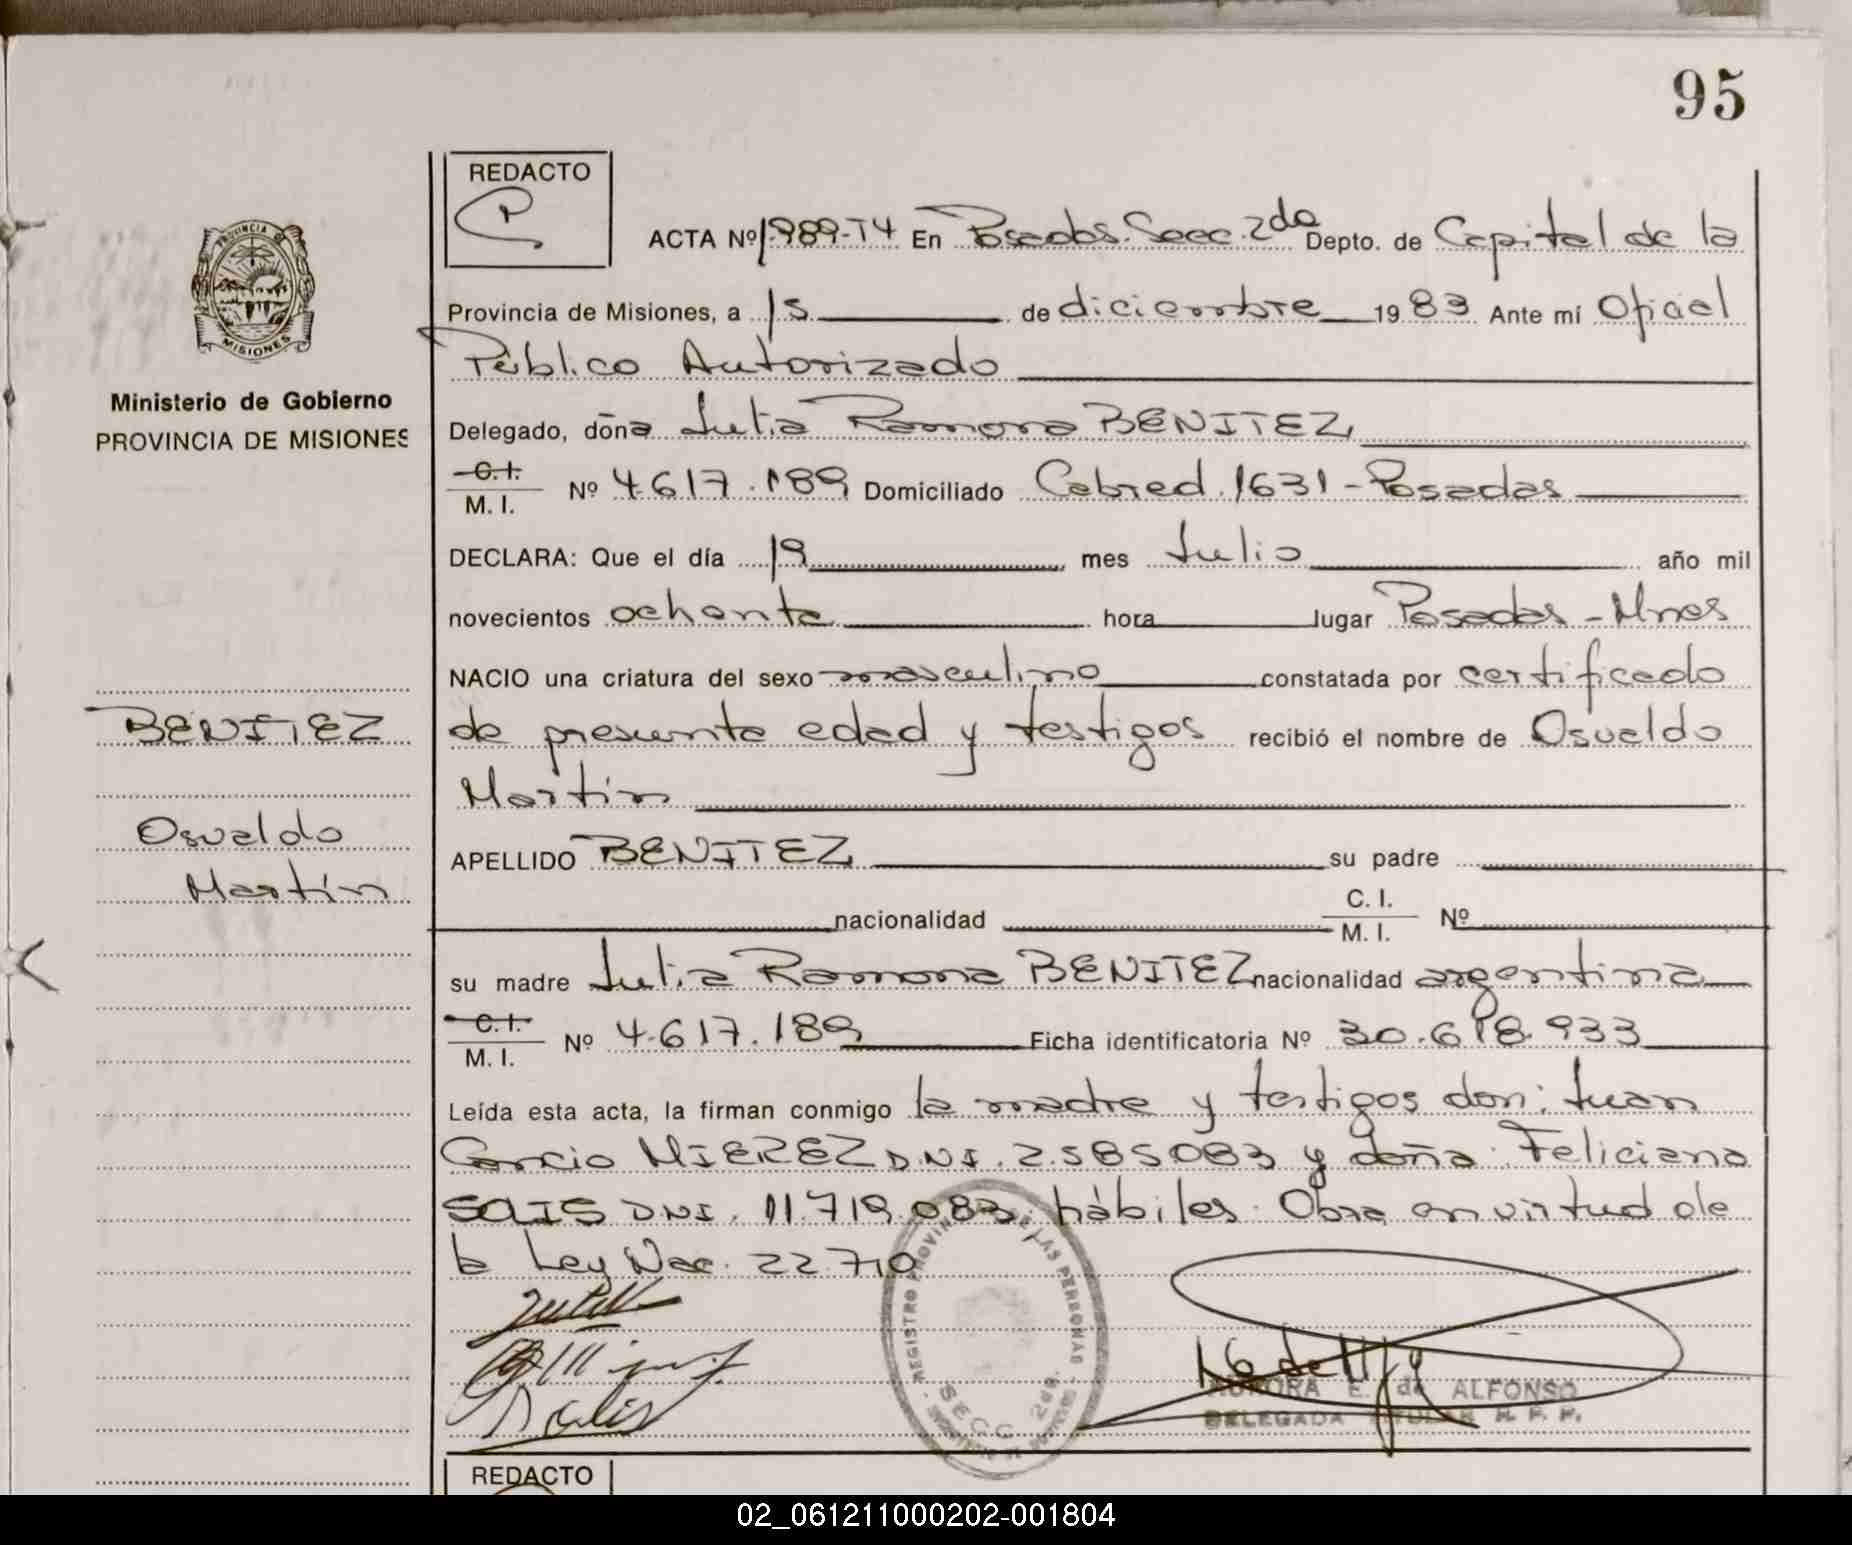 95
REDACTO
ACTA Nº 1.989-T4 En Posadas. Secc. 2da Depto. de Capital de la
PROVINCIA DE
MISIONES
Provincia de Misiones, a 15 de diciembre 1983 Ante mi Oficial
Público Autorizado
Ministerio de Gobierno
PROVINCIA DE MISIONES
Delegado, doña Julia Ramona BENITEZ
C.I.
M. I. Nº 4.617.189 Domiciliado Cabred 1631 - Posadas
DECLARA: Que el día 19 mes Julio año mil
novecientos ochenta hora lugar Posadas - Mnes
NACIO una criatura del sexo masculino constatada por certificado
BENITEZ
de presunta edad y testigos recibió el nombre de Osvaldo
Martin
Osvaldo
Martín
APELLIDO BENITEZ su padre
nacionalidad C. I.
M. I. Nº
su madre Julia Ramona BENITEZ nacionalidad argentina
C.I.
M. I. Nº 4.617.189 Ficha identificatoria Nº 30.618.933
Leída esta acta, la firman conmigo la madre y testigos don: Juan
MIEREZ D.N.I. 2.585083 y doña: Feliciana
SOLIS DNI. 11.719.083, hábiles. Obra en virtud de
la Ley Nac. 22.710
REGISTRO PROVINCIAL DE LAS PERSONAS
SECC. 2da.
AURORA E. de ALFONSO
DELEGADA TITULAR R. P. P.
REDACTO
02_061211000202-001804